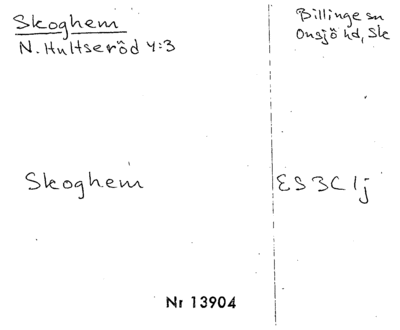 Skoghem
N. Hultseröd 4:3
Billinge sn
Onsjö hd, Sk
Skoghem
ES 3C 1j
Nr 13904